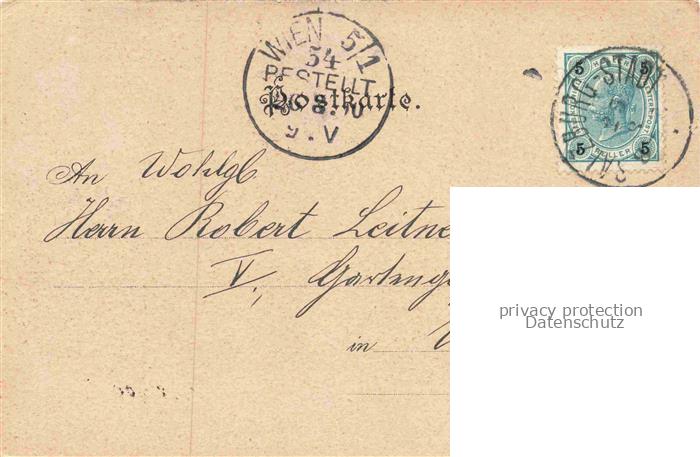 WIEN 5/1
54
BESTELLT
Postkarte.
9.V
5 5
5 HELLER 5
SALZBURG-STADT
An Wohlgb
Herrn Robert Leitne
V., Garteng
in
privacy protection
Datenschutz